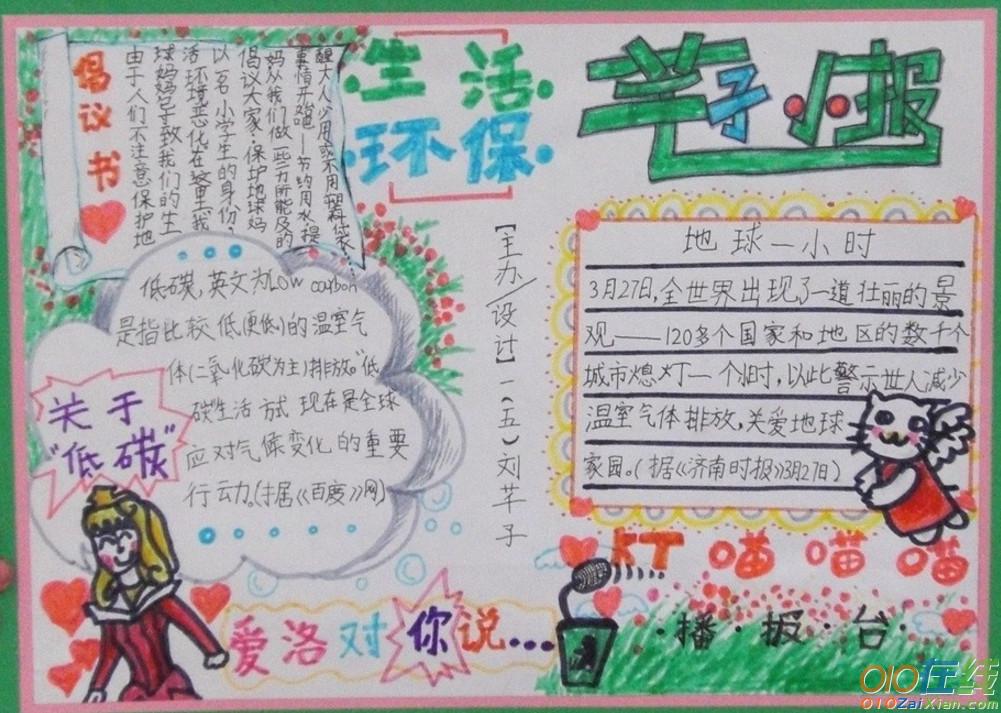 生活
环保
芊子小报
倡议书
由于人们不注意保护地
球妈妈导致我们的生
活环境恶化在这里我
以名小学生的身份，
倡议大家·保护地球妈
妈从我们做一些力所能及的
事情开始吧——节约用水提
醒大人少用或不用塑料袋……
低碳，英文为low carbon
是指比较低(更低)的温室气
体(二氧化碳为主)排放。"低
碳"生活方式现在是全球
应对气候变化的重要
行动。(据《百度》网)
关于
"低碳"
【主办/设计】一(五)刘芊子
地球一小时
3月27日，全世界出现了一道壮丽的景
观——120多个国家和地区的数千个
城市熄灯一个小时，以此警示世人减少
温室气体排放，关爱地球
家园。(据《济南时报》3月27日)
KT喵喵喵
·播·报·台·
爱洛对你说...
010在线
010ZaiXian.com